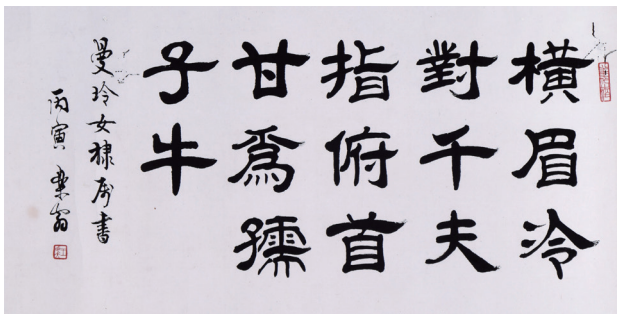 橫眉冷
對千夫
指俯首
甘為孺
子牛
曼玲女棣屬書
丙寅 藥翁